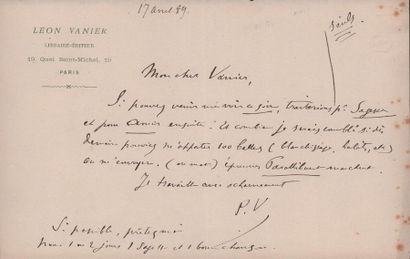 17 avril 89.
seuls
LÉON VANIER
LIBRAIRE-ÉDITEUR
19, Quai Saint-Michel, 19
PARIS
Mon cher Vanier,
Si pouvez venir me voir ce soir, traiterions pr Sagesse
et pour Amies ensuite. Et combien je serais comblé si dès
demain pouviez m'apporter 100 balles (blanchissage, habits, etc)
ou m'envoyer, (ou mot) épreuves Parallèlement
Je travaille avec acharnement
P. V
Si possible, prêtez-moi
pour 1 ou 2 jours 1 Sagesse et 1 bonne chanson